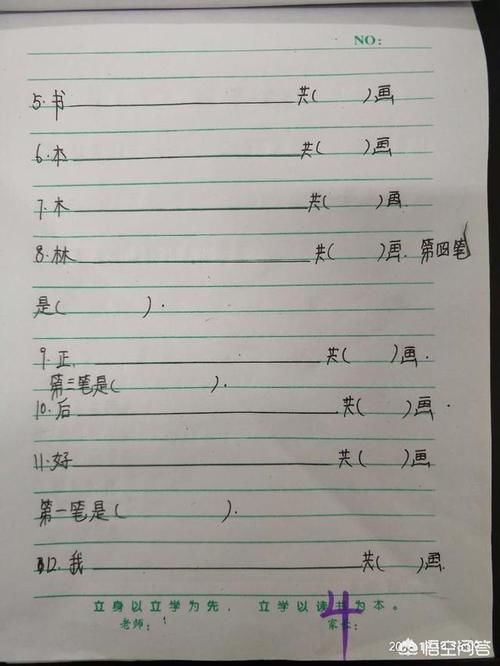 NO:
5.书____________共(  )画
6.本____________共(  )画
7.木____________共(  )画
8.林____________共(  )画. 第四笔
是(  ).
9.正.____________共(  )画.
第三笔是(  ).
10.后____________共(  )画.
11.好____________共(  )画
第一笔是(  ).
12.我____________共(  )画.
立身以立学为先，立学以读书为本。
老师： 家长：
4
悟空问答